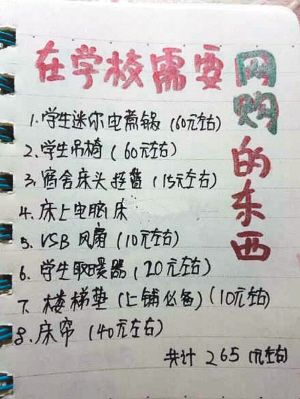 在学校需要网购的东西
1.学生迷你电煮锅(60元左右)
2.学生吊椅(60元左右)
3.宿舍床头挂篮(15元左右)
4.床上电脑床
5.VSB风扇(10元左右)
6.学生取暖器(20元左右)
7.楼梯垫(上铺必备)(10元左右)
8.床帘(40元左右)
共计 265(元左右)